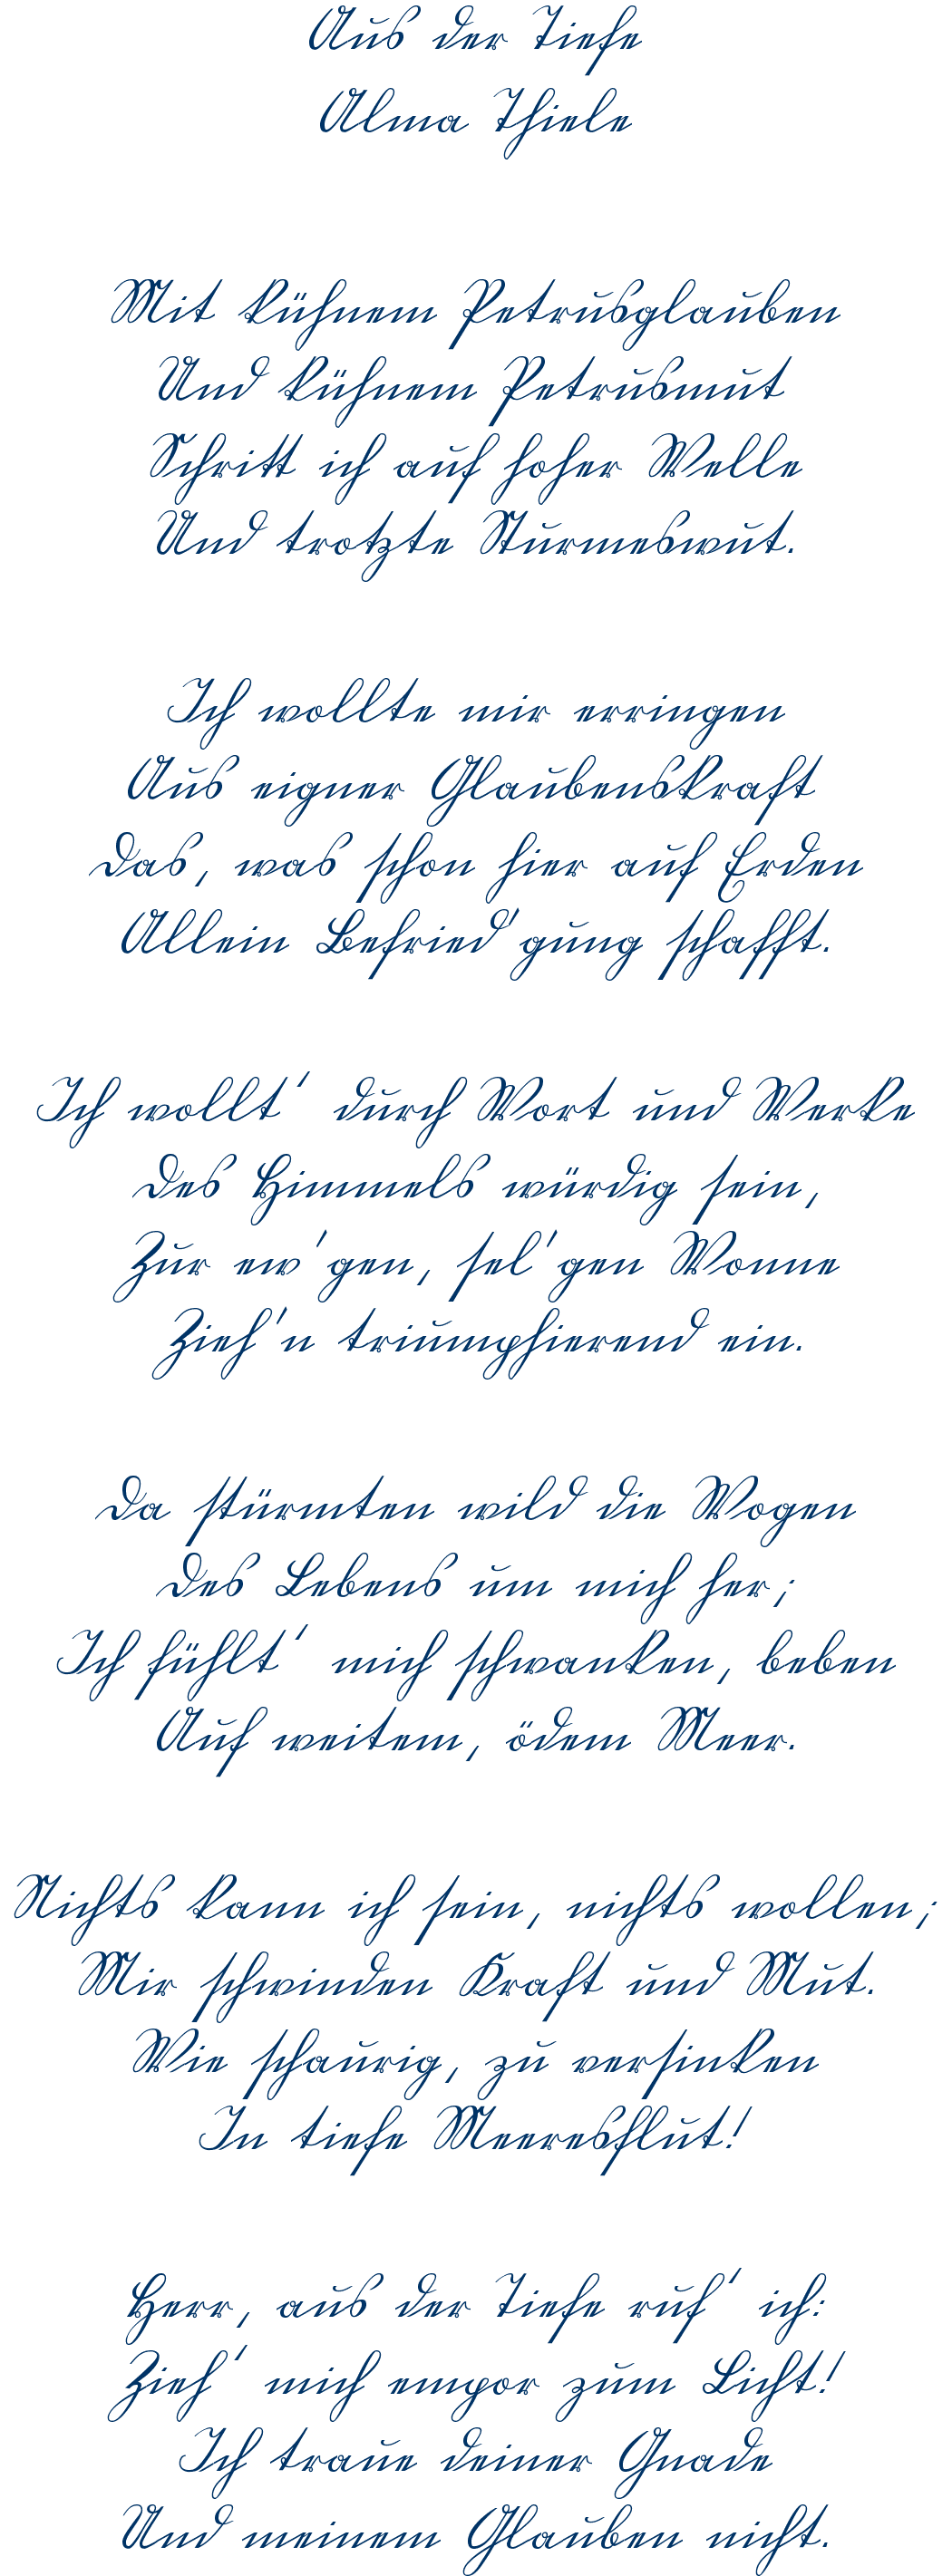 Aus der Tiefe
Alma Thiele
Mit kühnem Petrusglauben
Und kühnem Petrusmut
Schritt ich auf hoher Welle
Und trotzte Sturmeswut.
Ich wollte mir erringen
Aus eigner Glaubenskraft
Das, was schon hier auf Erden
Allein Befried'gung schafft.
Ich wollt' durch Wort und Werke
Des Himmels würdig sein,
Zur ew'gen, sel'gen Wonne
Zieh'n triumphierend ein.
Da stürmten wild die Wogen
Des Lebens um mich her;
Ich fühlt' mich schwanken, beben
Auf weitem, ödem Meer.
Nichts kann ich sein, nichts wollen;
Mir schwinden Kraft und Mut.
Wie schaurig, zu versinken
In tiefe Meeresflut!
Herr, aus der Tiefe ruf' ich:
Zieh' mich empor zum Licht!
Ich traue deiner Gnade
Und meinem Glauben nicht.